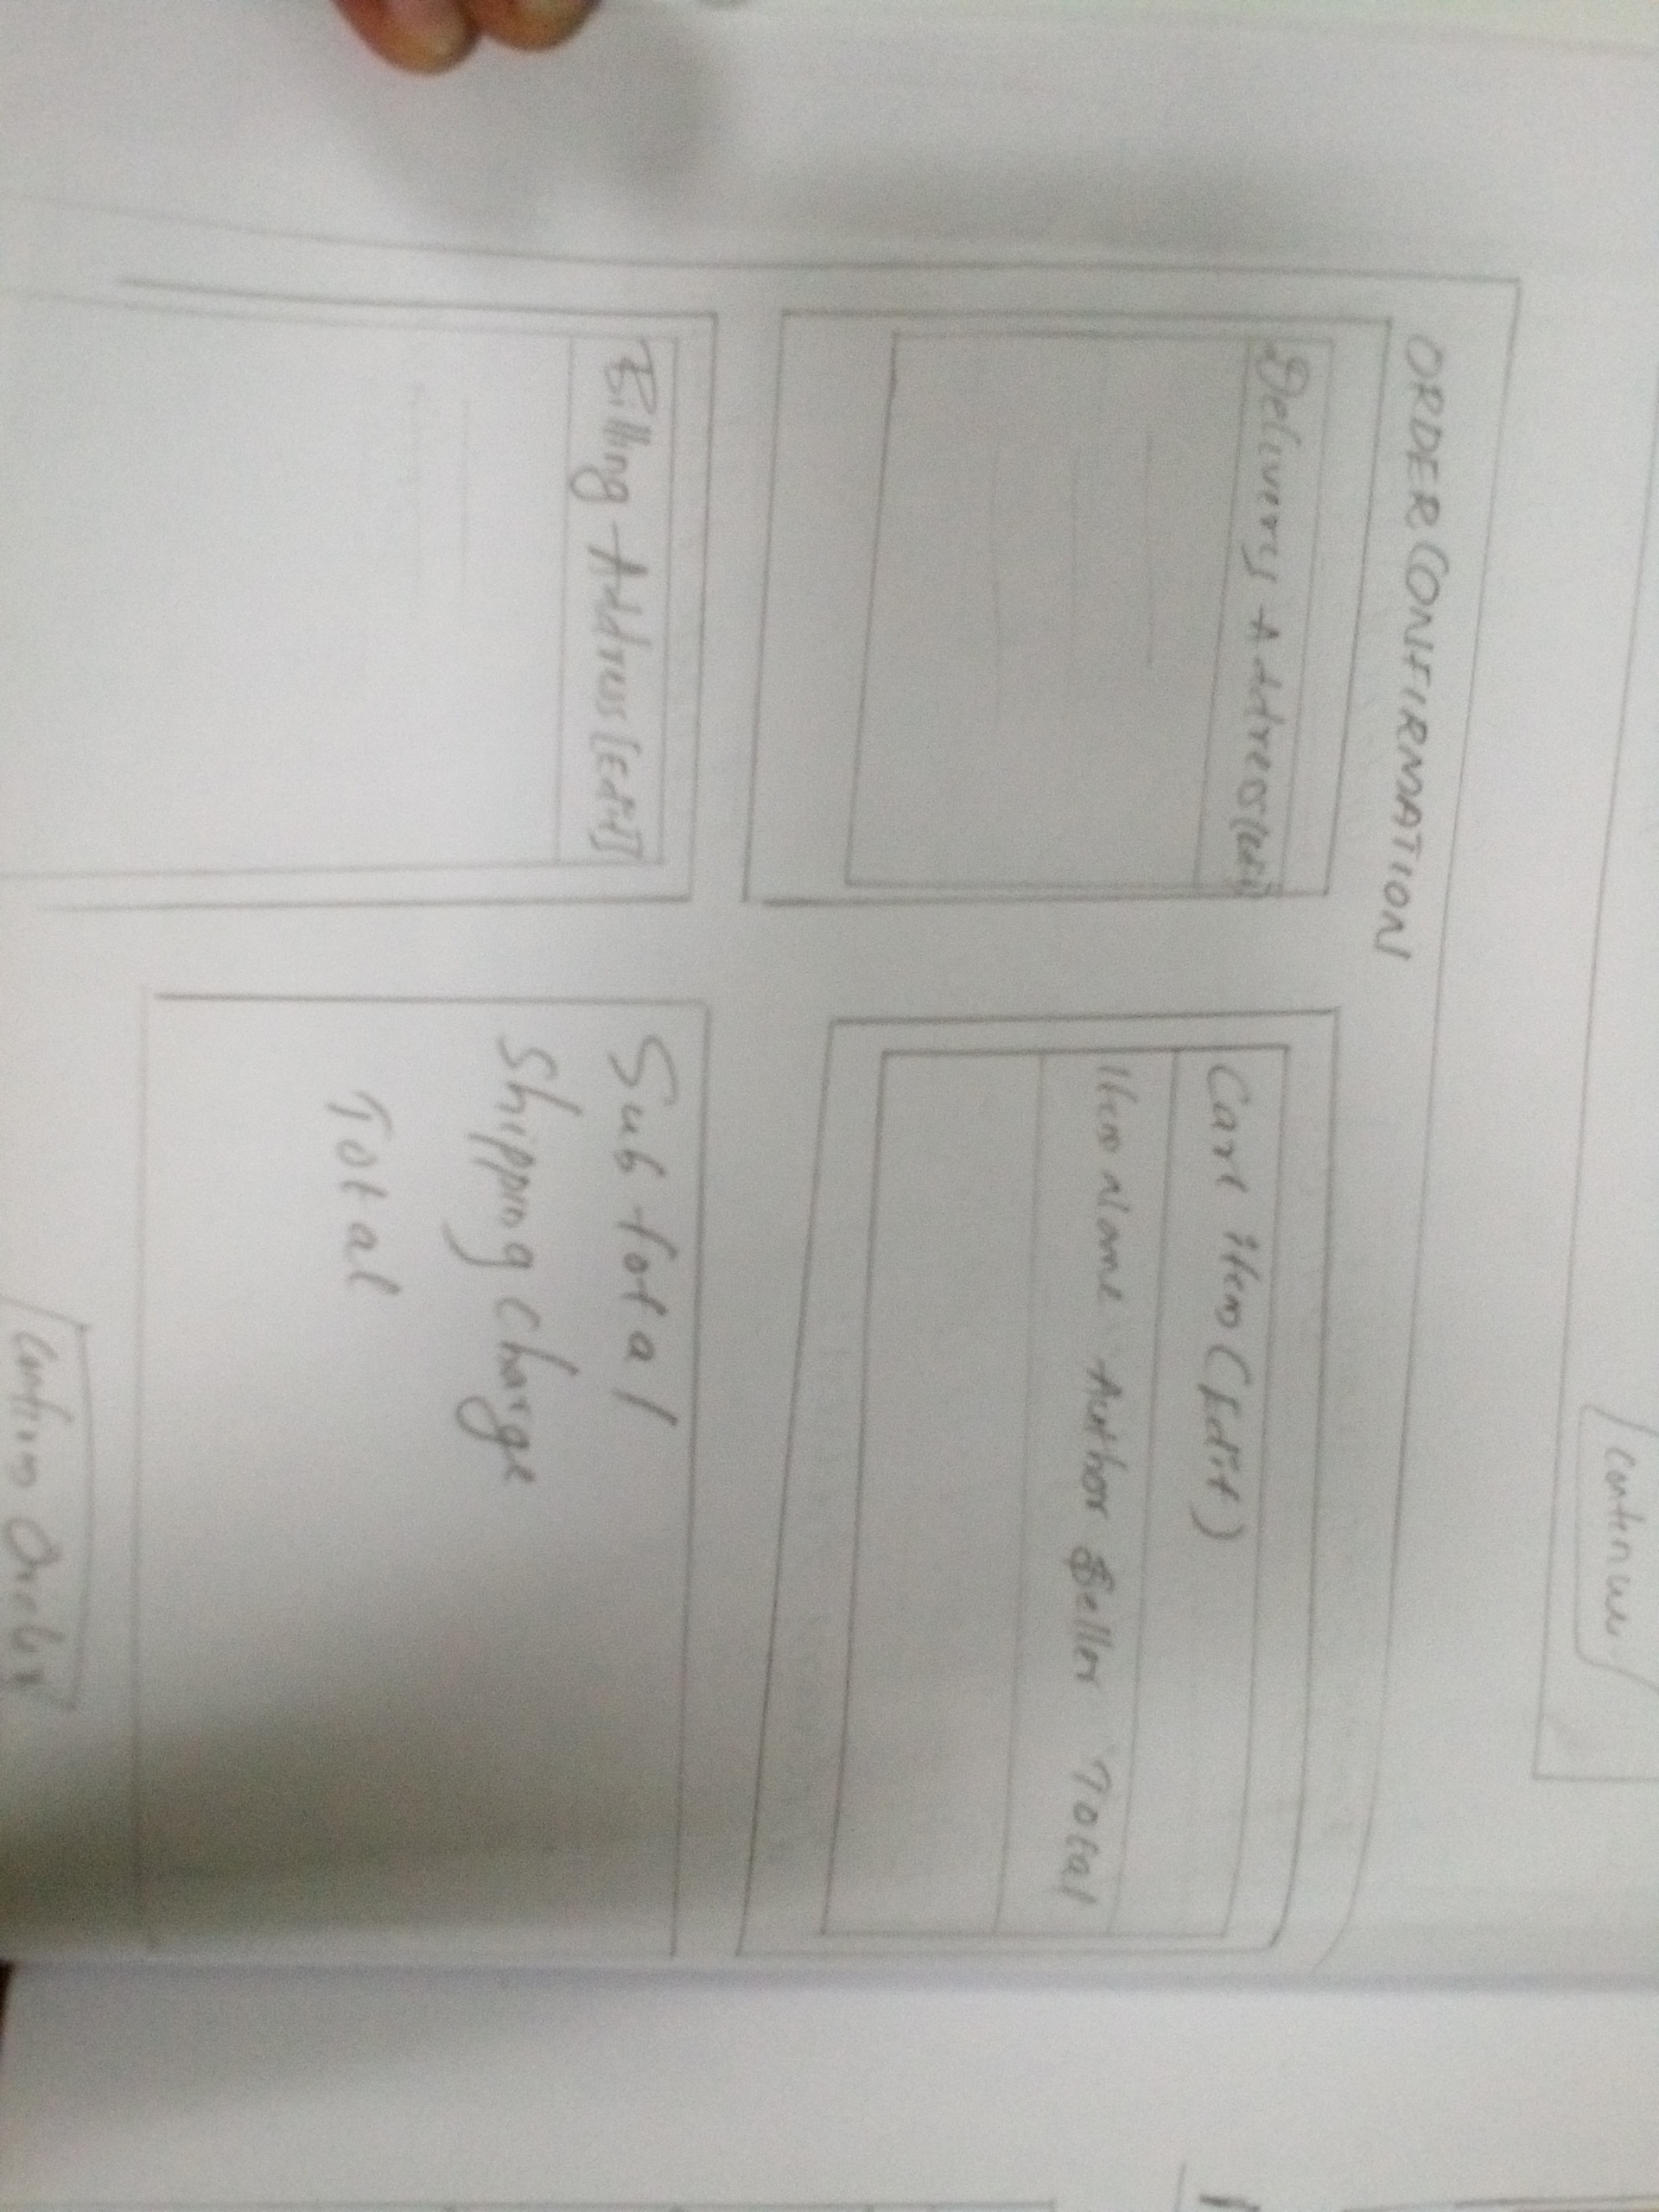 Continue
ORDER CONFIRMATION
Delivery Address (Edit)
Cart item (Edit)
Item Name Author Seller Total
Billing Address [Edit]
Sub total
Shipping Charge
Total
Confirm Order